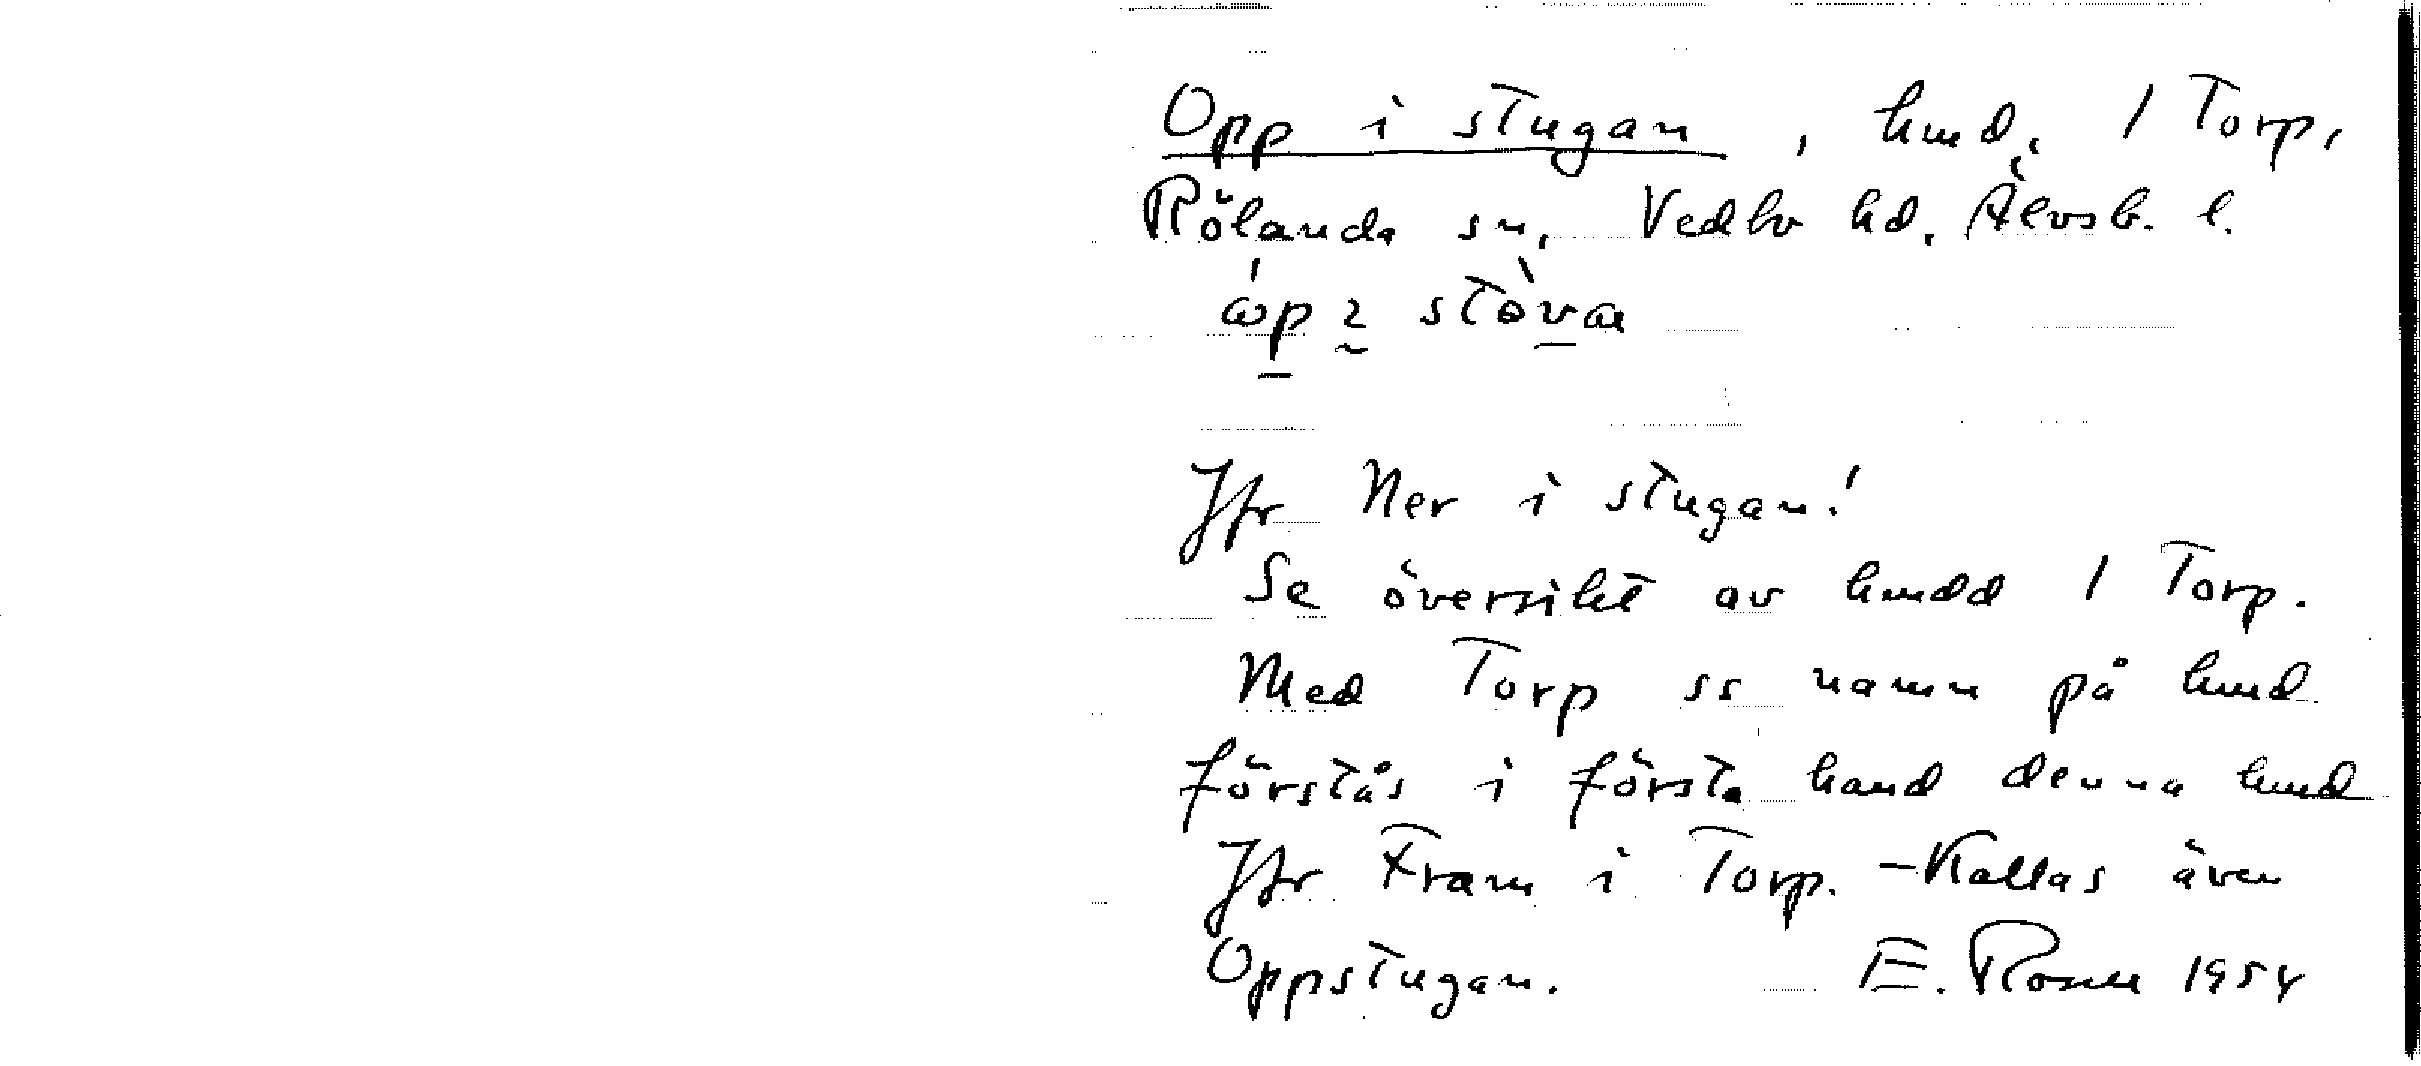 Opp i stugan, hmd, 1 Torp,
Rölanda sn, Vedbo hd, Älvsb. l.
Jfr Ner i stugan!
Se översikt av hmdd 1 Torp.
Med Torp ss namn på hmd
förstås i första hand denna hmd
Jfr Fram i Torp. – Kallas även
Oppstugan. E. Rosell 1954